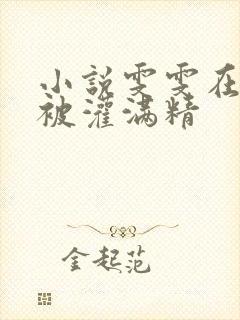 小说雯雯在
被灌满精
金起范